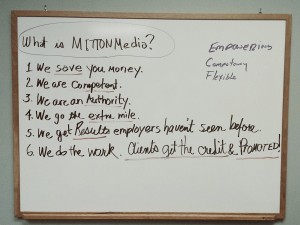 What is MITTONMedia?
1. We save you money.
2. We are Competent.
3. We are an Authority.
4. We go the extra mile.
5. We get Results employers haven't seen before.
6. We do the work. Clients get the credit & PROMOTED!
EMPOWERING
Competency
Flexible